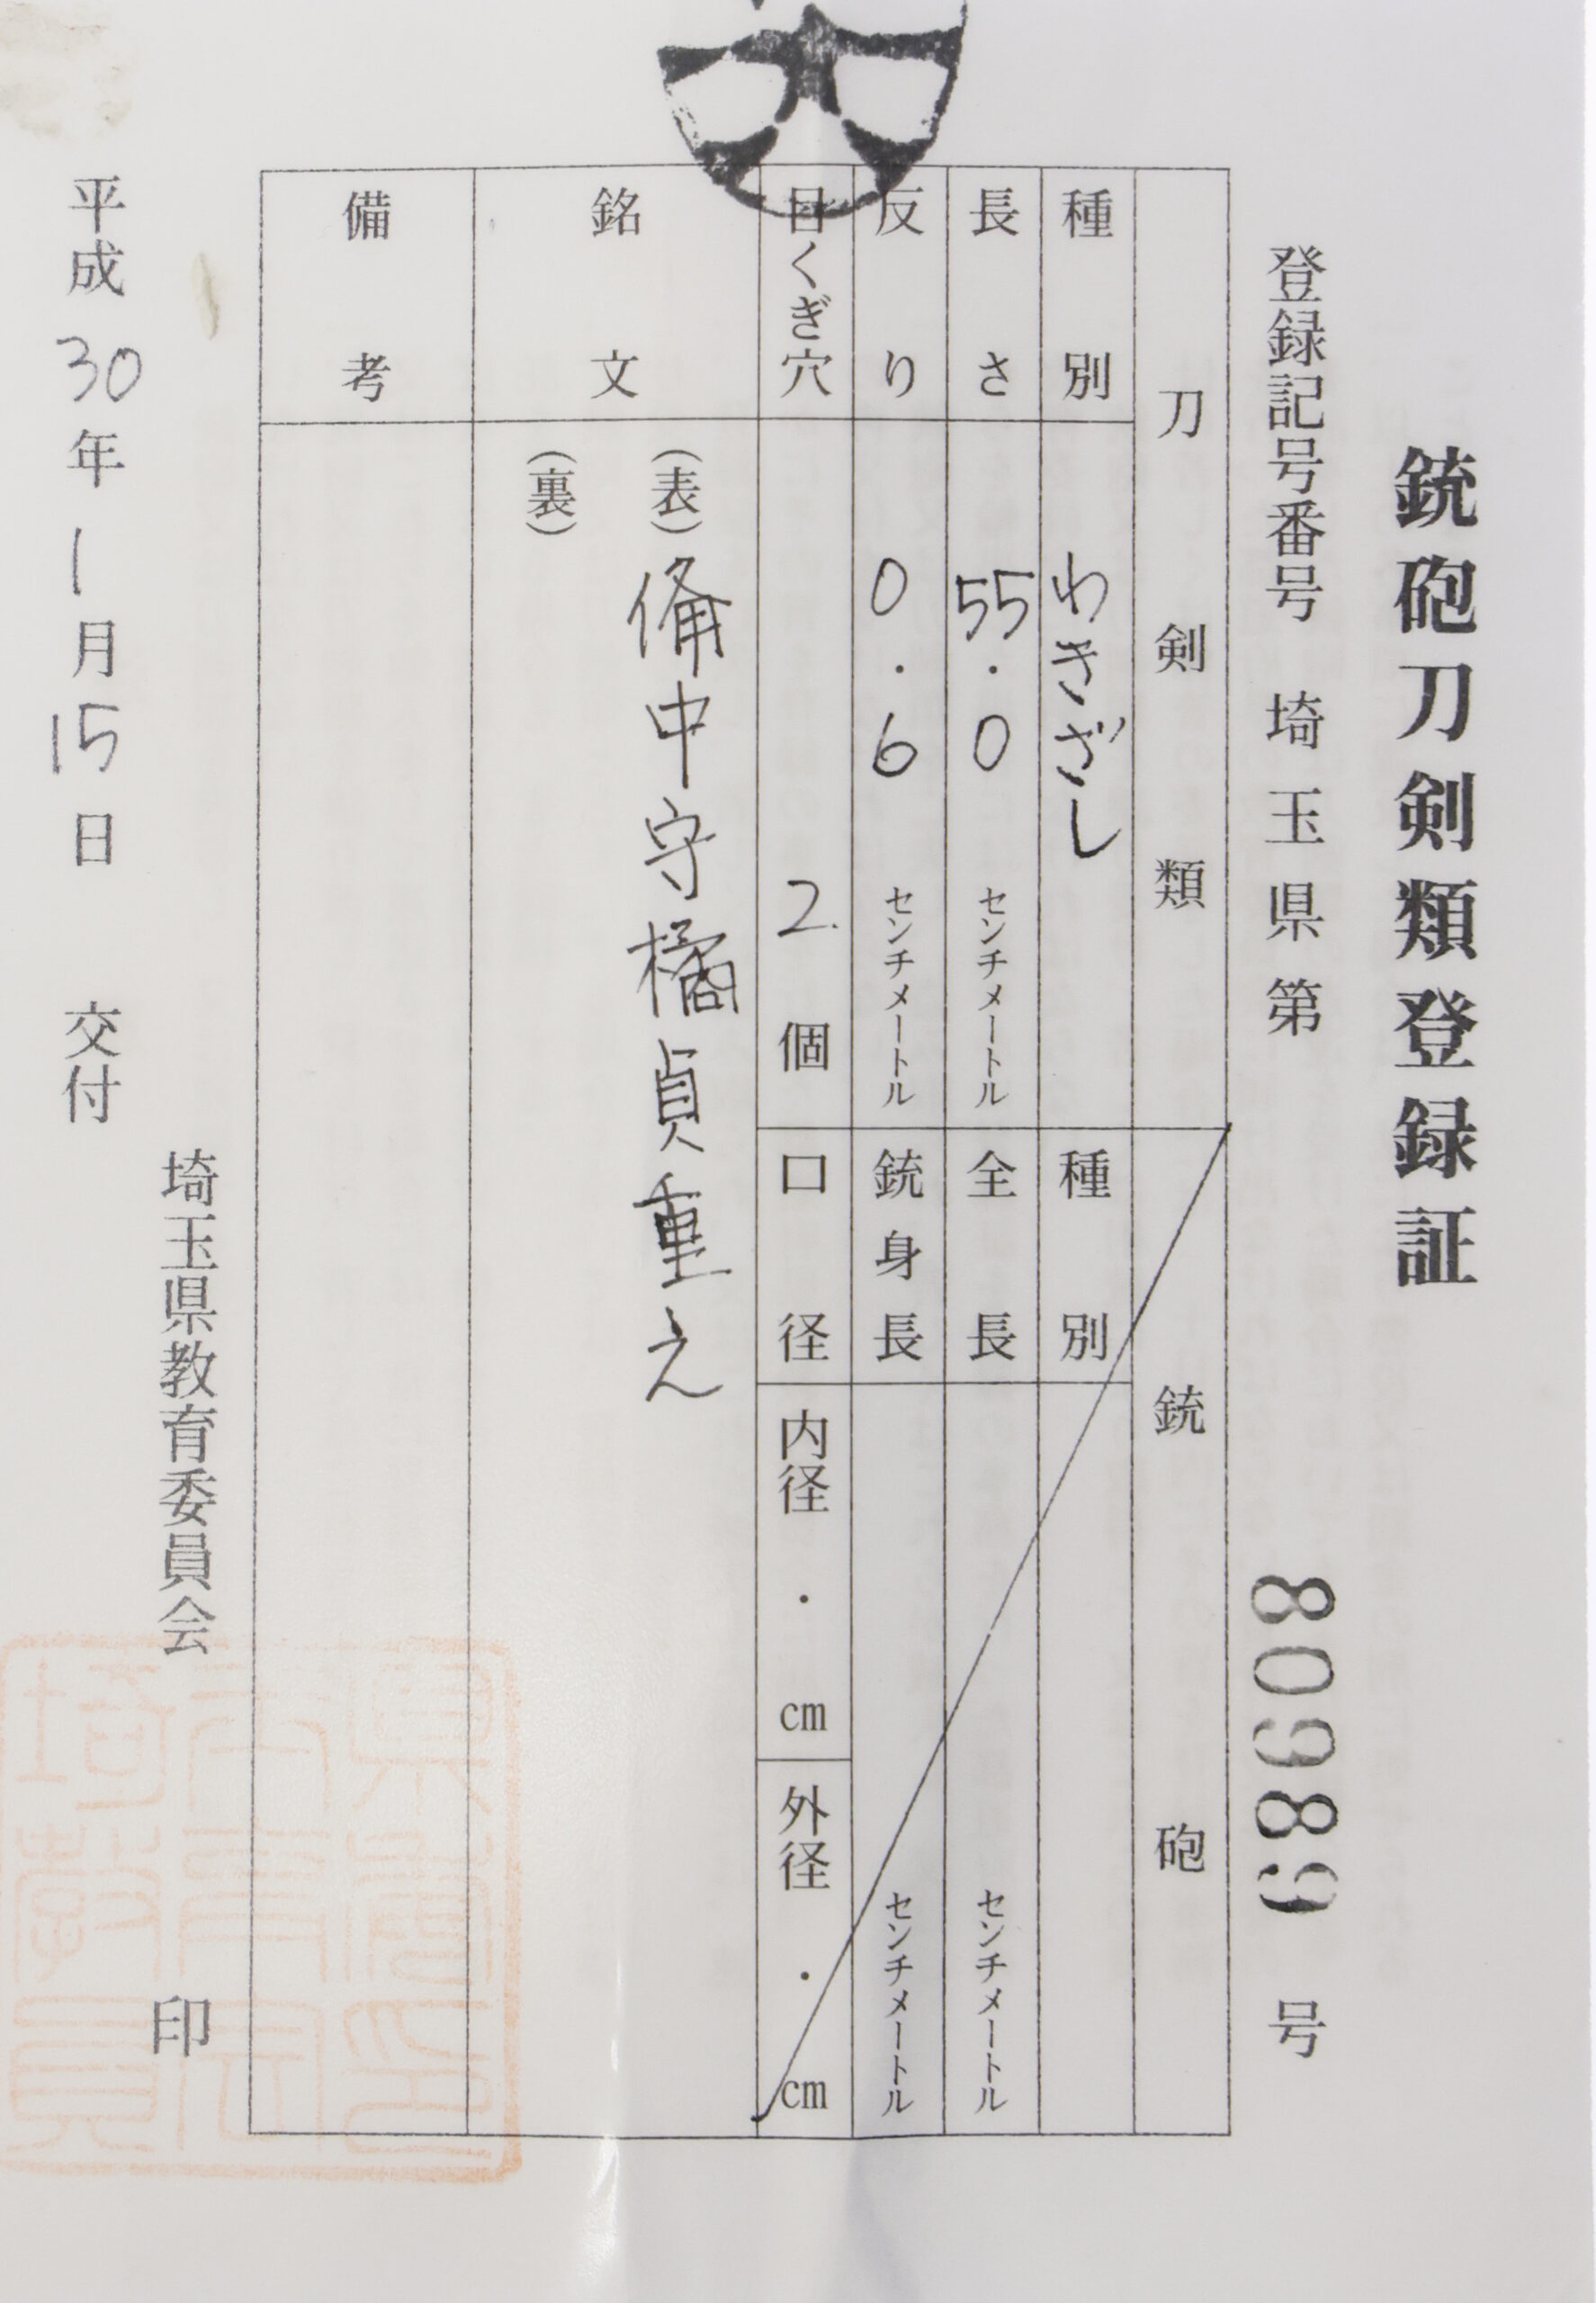 銃砲刀剣類登録証
登録記号番号 埼玉県第 80989 号
刀剣類
銃砲
種別 わきざし
種別
長さ 55.0 センチメートル
全長 センチメートル
反り 0.6 センチメートル
銃身長 センチメートル
目くぎ穴 2 個
口径 内径 ・ cm 外径 ・ cm
銘文 (表) 備中守橘貞重え
(裏)
備考
埼玉県教育委員会 印
平成30年1月15日 交付